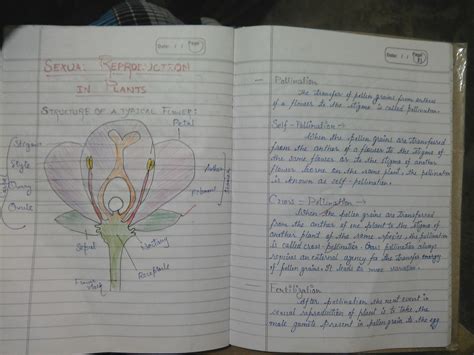 Date: / /
Page:
SEXUAL REPRODUCTION
IN PLANTS
STRUCTURE OF A TYPICAL FLOWER:
Petal
Stigma
Style
Ovary
Ovule
Anther
Filament
Sepal
Nectary
Receptacle
Date: / /
Page:
Pollination
The transfer of pollen grains from anthers
of a flower to the stigma is called pollination.
Self-Pollination →
When the pollen grains are transferred
from the anther of a flower to the stigma of
the same flower or to the stigma of another
flower borne on the same plant, the pollination
is known as self-pollination.
Cross - Pollination →
When the pollen grains are transferred
from the anther of one plant to the stigma of
another plant of the same species the pollination
is called cross pollination. Cross pollination always
requires an external agency for the transfer
of pollen grains. It leads to more variation.
Fertilization
After pollination, the next event in
sexual reproduction of plant is to take the
male gamete present in pollen grain to the egg